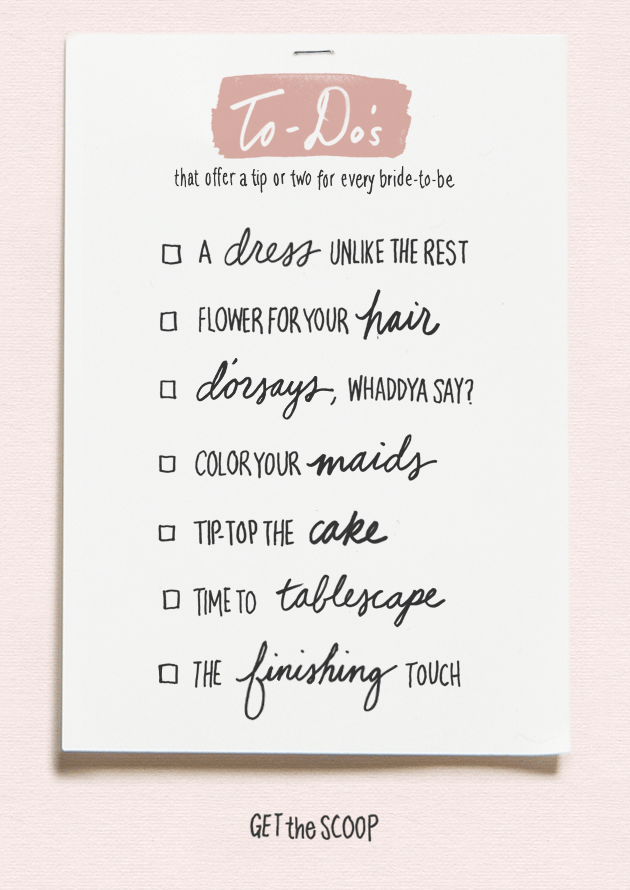 To-Do's
that offer a tip or two for every bride-to-be
A dress UNLIKE THE REST
FLOWER FOR YOUR hair
d'orsays, WHADDYA SAY?
COLOR YOUR maids
TIP-TOP THE cake
TIME TO tablescape
THE finishing TOUCH
GET the SCOOP